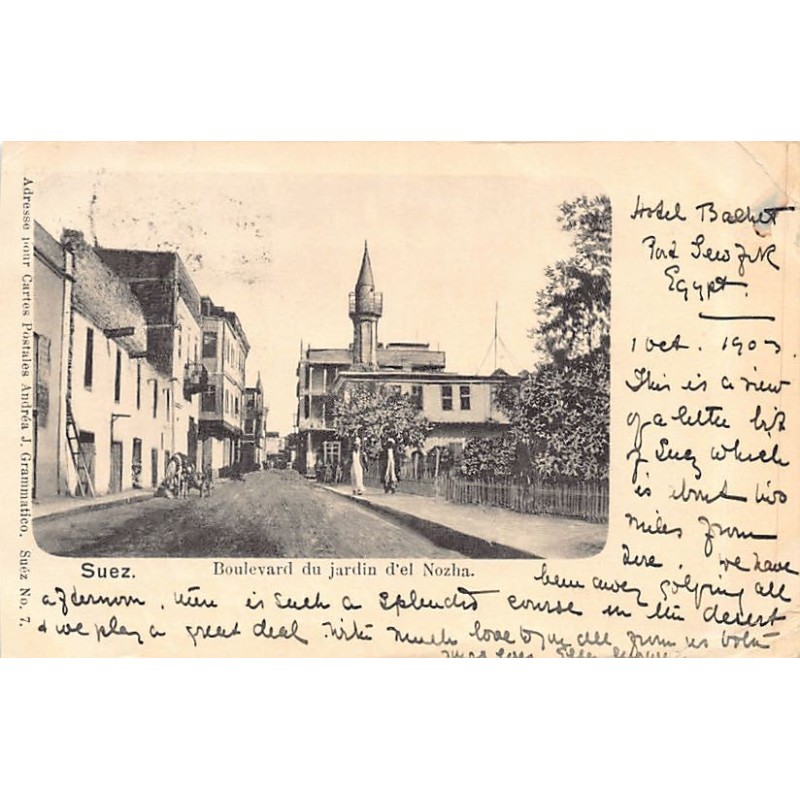 Adresse pour Cartes Postales Andréa J. Grammatico. Suéz No. 7.
Suez.
Boulevard du jardin d'el Nozha.
Hotel Bachet
Port Tewfik
Egypt.
1 Oct. 1903
This is a view
of a little bit
of Suez which
is about two
miles from
here. we have
been away golfing all
afternoon, there is such a splendid course in the desert
& we play a great deal with much love to you all from us both